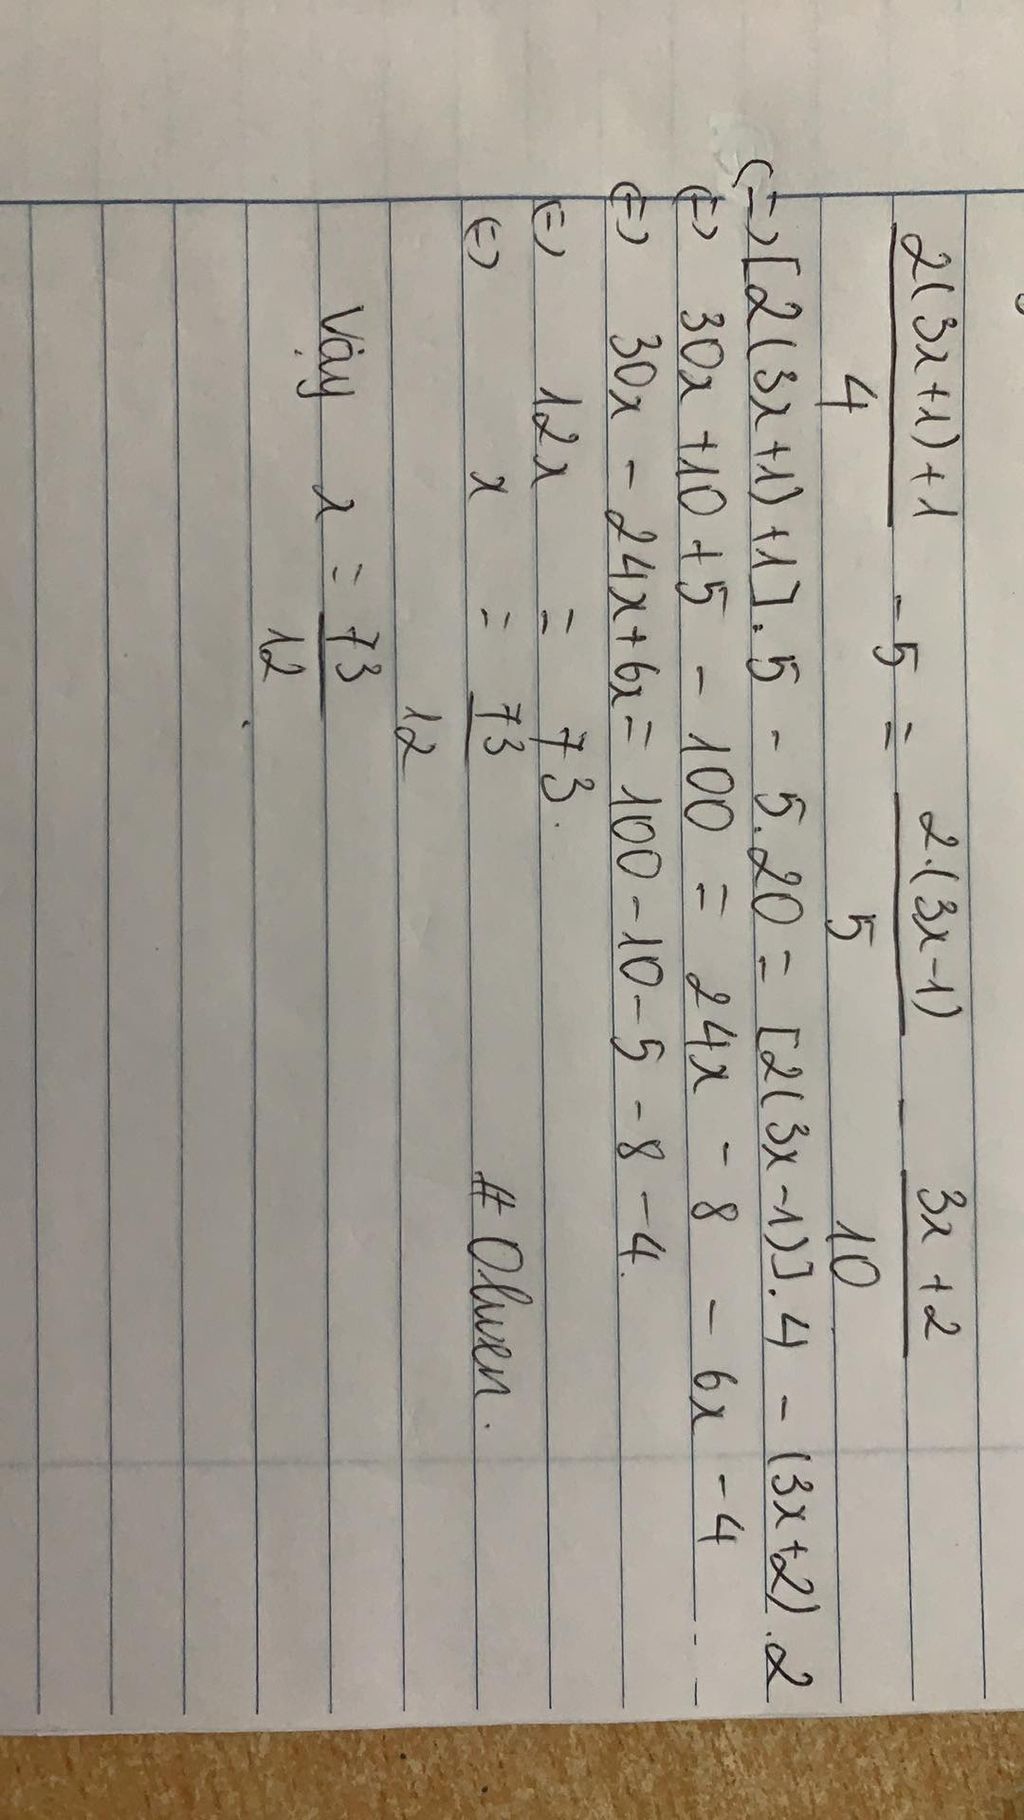 2(3x+1)+1 / 4 - 5 = 2.(3x-1) / 5 - 3x+2 / 10
(=) [2(3x+1)+1].5 - 5.20 = [2(3x-1)].4 - (3x+2).2
(=) 30x+10+5 - 100 = 24x - 8 - 6x - 4
(=) 30x - 24x+6x = 100-10-5-8-4.
(=) 12x = 73.
(=) x = 73 / 12
Vậy x = 73 / 12